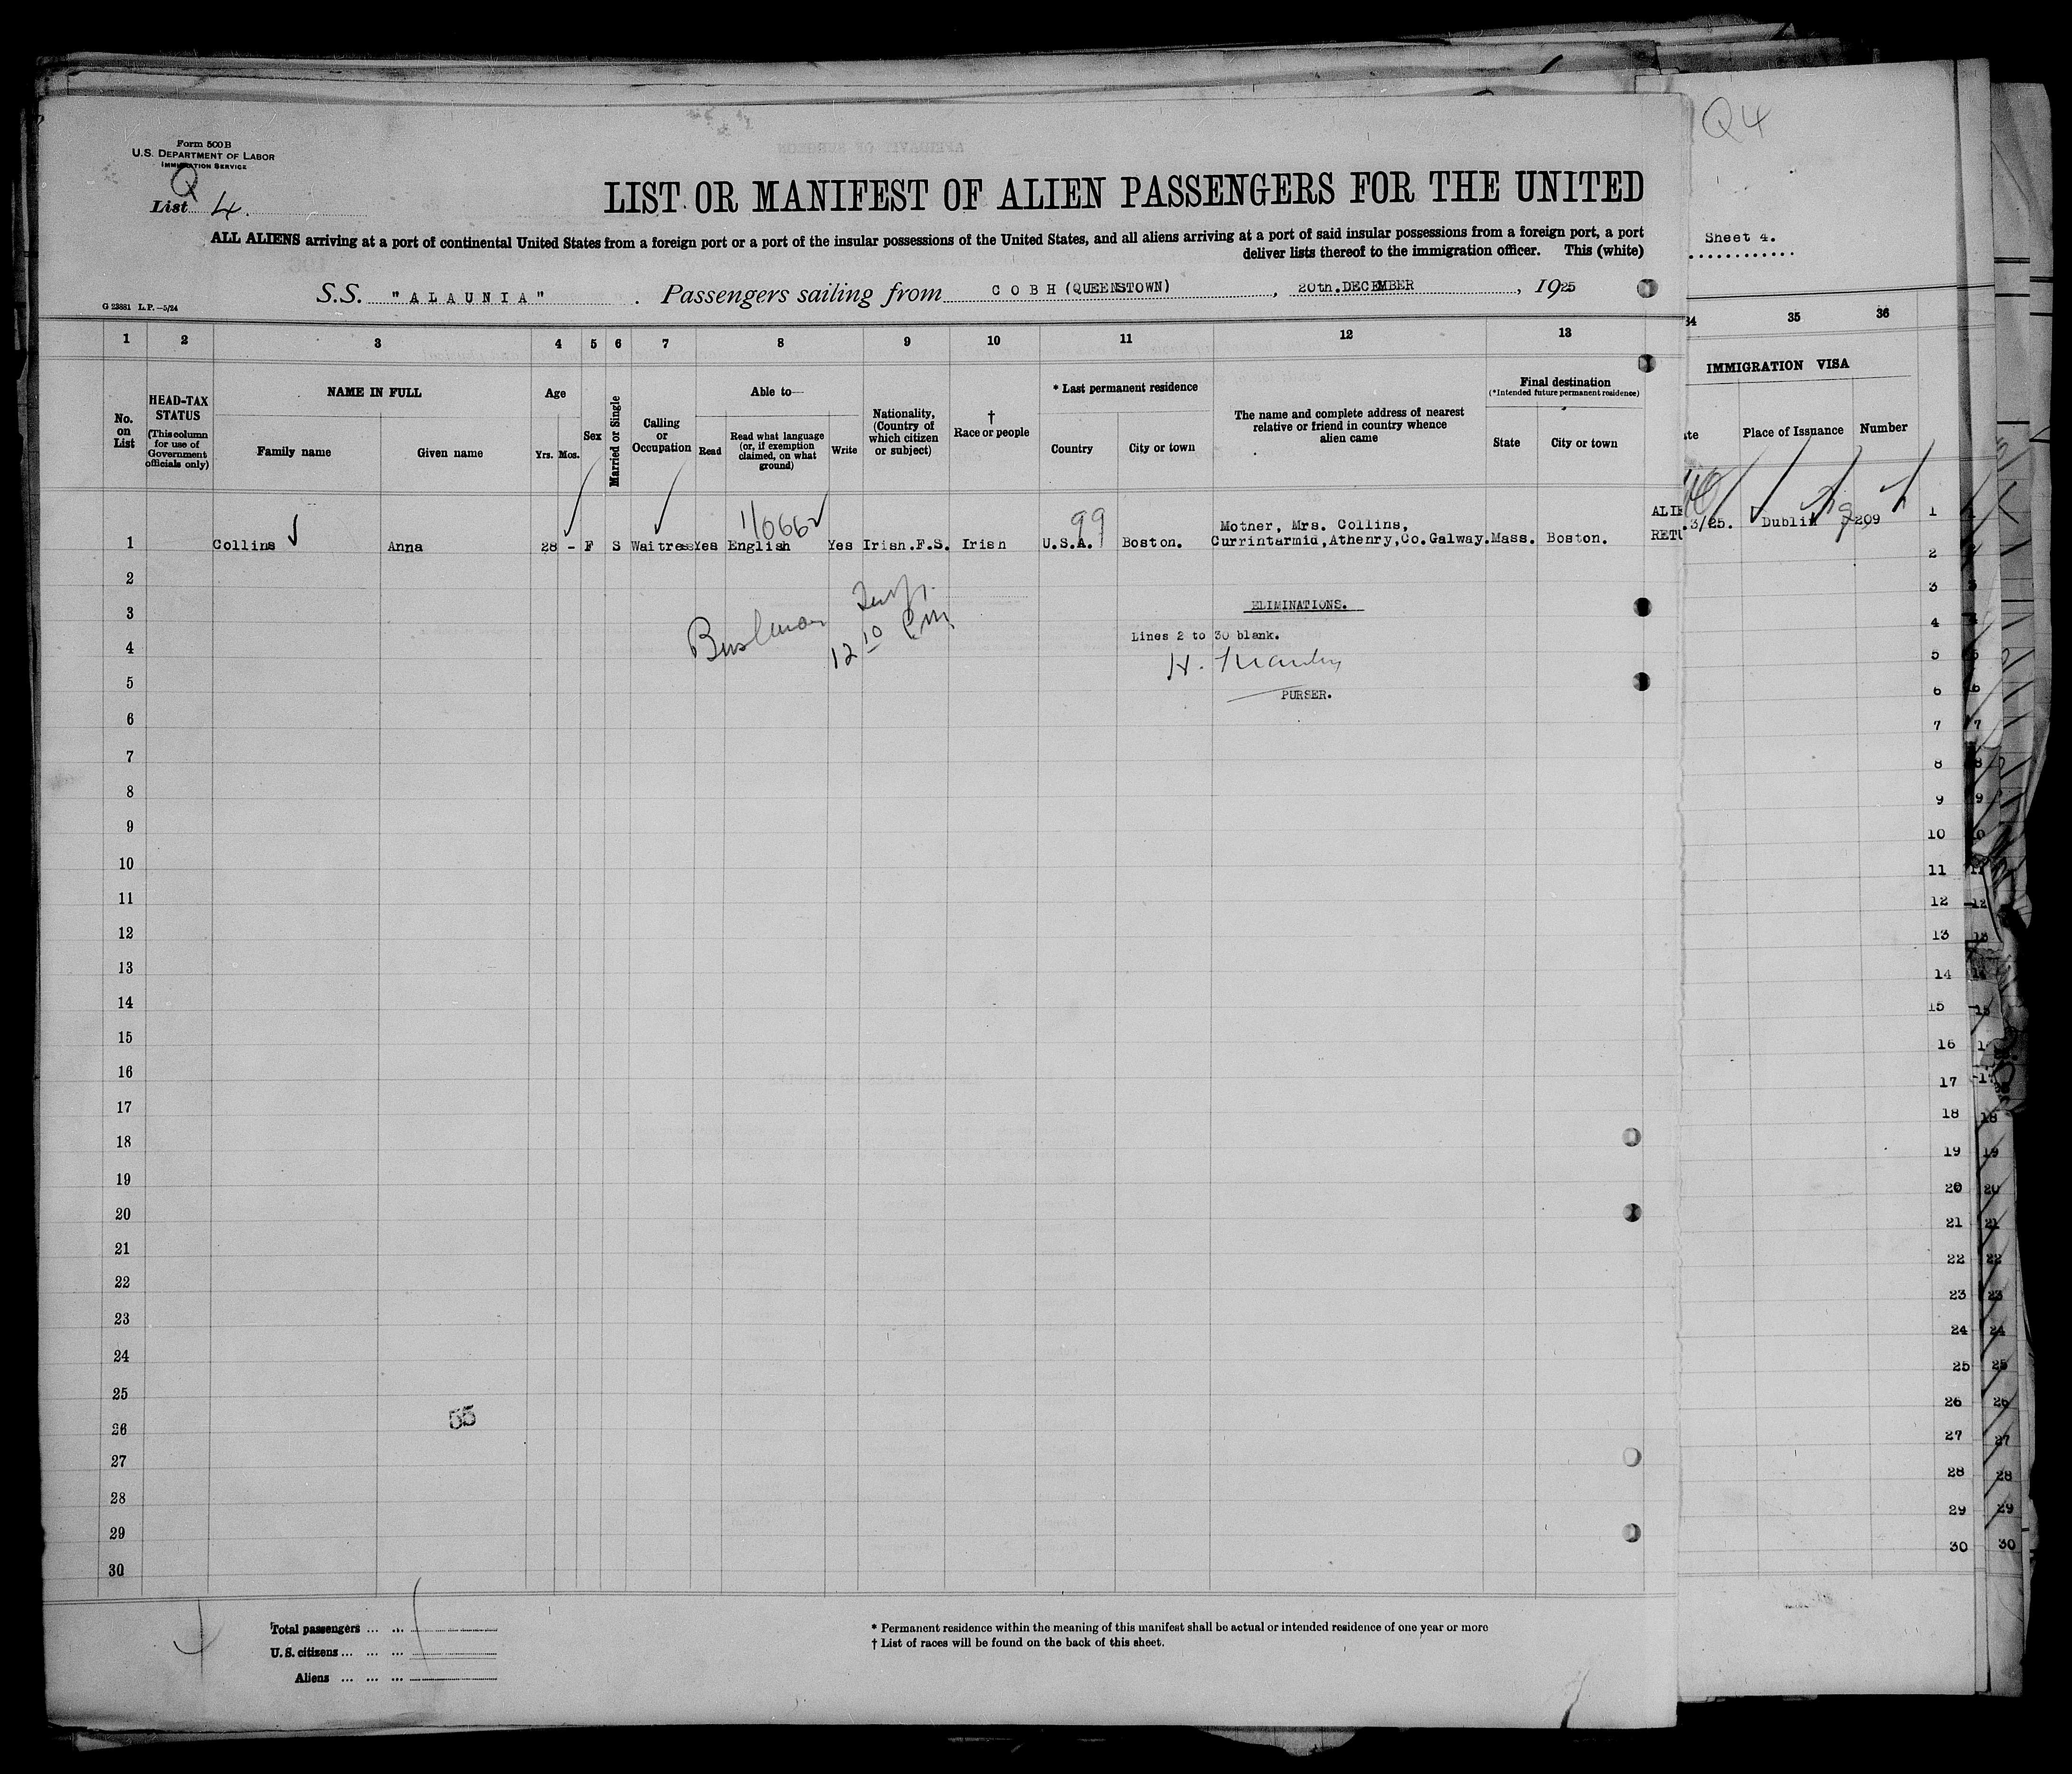 Form 500B
U.S. DEPARTMENT OF LABOR
IMMIGRATION SERVICE
Q
List 4.
LIST OR MANIFEST OF ALIEN PASSENGERS FOR THE UNITED
ALL ALIENS arriving at a port of continental United States from a foreign port or a port of the insular possessions of the United States, and all aliens arriving at a port of said insular possessions from a foreign port, a port
deliver lists thereof to the immigration officer. This (white)
G 23881 L.P.—5/24
S.S. "ALAUNIA" . Passengers sailing from COBH (QUEENSTOWN), 20th. DECEMBER, 1925
1 2 3 4 5 6 7 8 9 10 11 12 13
No. on List
HEAD-TAX STATUS
(This column for use of Government officials only)
NAME IN FULL
Family name
Given name
Age
Yrs. Mos.
Sex
Married or Single
Calling or Occupation
Able to—
Read
Read what language (or, if exemption claimed, on what ground)
Write
Nationality, (Country of which citizen or subject)
† Race or people
* Last permanent residence
Country
City or town
The name and complete address of nearest relative or friend in country whence alien came
Final destination
(*Intended future permanent residence)
State
City or town
1/0662
99
Motner, Mrs. Collins,
1 Collins Anna 28 - F S Waitress Yes English Yes Irish.F.S. Irish U.S.A. Boston. Currintarmid,Athenry,Co.Galway. Mass. Boston.
2
3
4
5
6
7
8
9
10
11
12
13
14
15
16
17
18
19
20
21
22
23
24
25
26
27
28
29
30
12 10 Pm
ELIMINATIONS.
Lines 2 to 30 blank.
PURSER.
55
Total passengers ... ...
U.S. citizens ... ... ...
Aliens ... ... ...
* Permanent residence within the meaning of this manifest shall be actual or intended residence of one year or more
† List of races will be found on the back of this sheet.
Q4
Sheet 4.
34 35 36
IMMIGRATION VISA
Place of Issuance
Number
ALIE
RETU
3/25. Dublin 7209
1
2
3
4
5
6
7
8
9
10
11
12
13
14
15
16
17
18
19
20
21
22
23
24
25
26
27
28
29
30